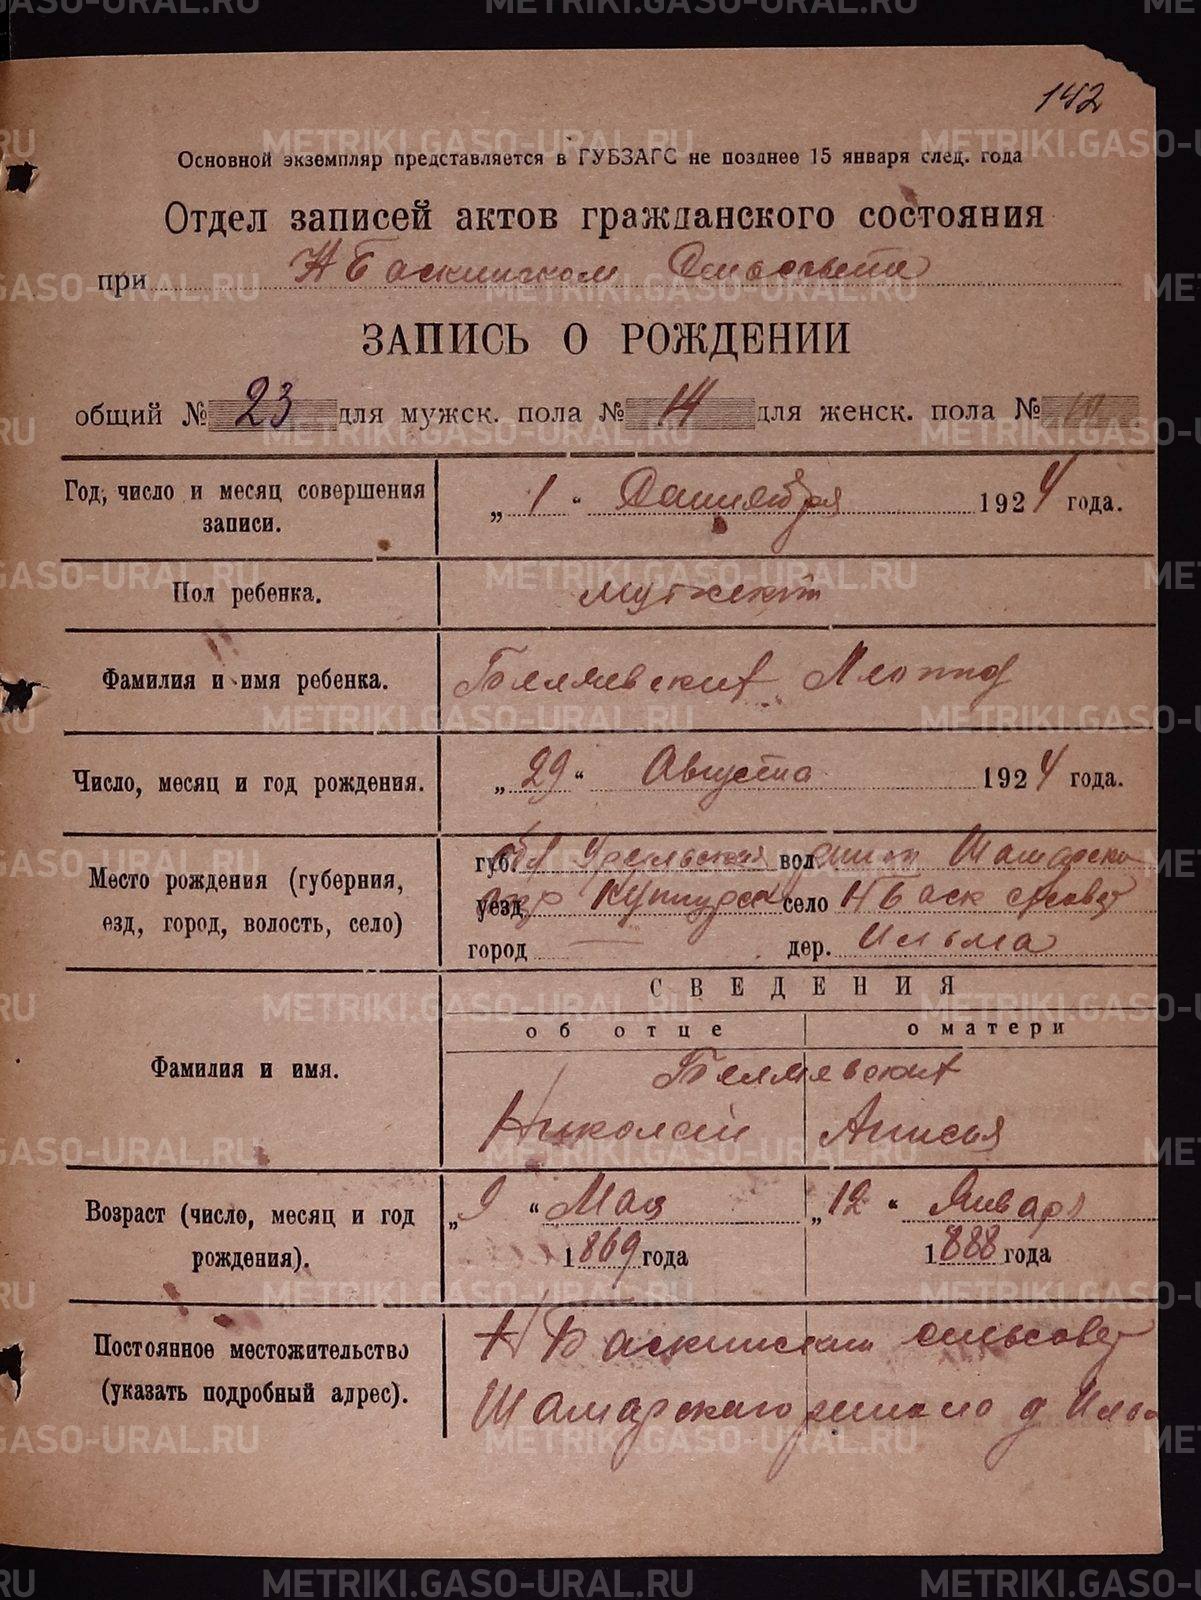 142
Основной экземпляр представляется в ГУБЗАГС не позднее 15 января след. года
Отдел записей актов гражданского состояния
при Н Баскинском Сельсовете
ЗАПИСЬ О РОЖДЕНИИ
общий № 23 для мужск. пола № 14 для женск. пола № 10
Год, число и месяц совершения записи. „ 1 “ Сентября 1924 года.
Пол ребенка. мужской
Фамилия и имя ребенка.
Число, месяц и год рождения. „ 29 “ Августа 1924 года.
Место рождения (губерния, езд, город, волость, село)
губ. обл Уральская вол. Шамарски
уезд окр Кунгурск село Н Баск с/совет
город дер. Ильма
СВЕДЕНИЯ
об отце о матери
Фамилия и имя.
Николай Анисья
Возраст (число, месяц и год рождения). „ 9 “ Мая „ 12 “ Января
1869 года 1888 года
Постоянное местожительство (указать подробный адрес).
Н Баскинский сельсовет
Шамарского района д Ильм
METRIKI.GASO-URAL.RU